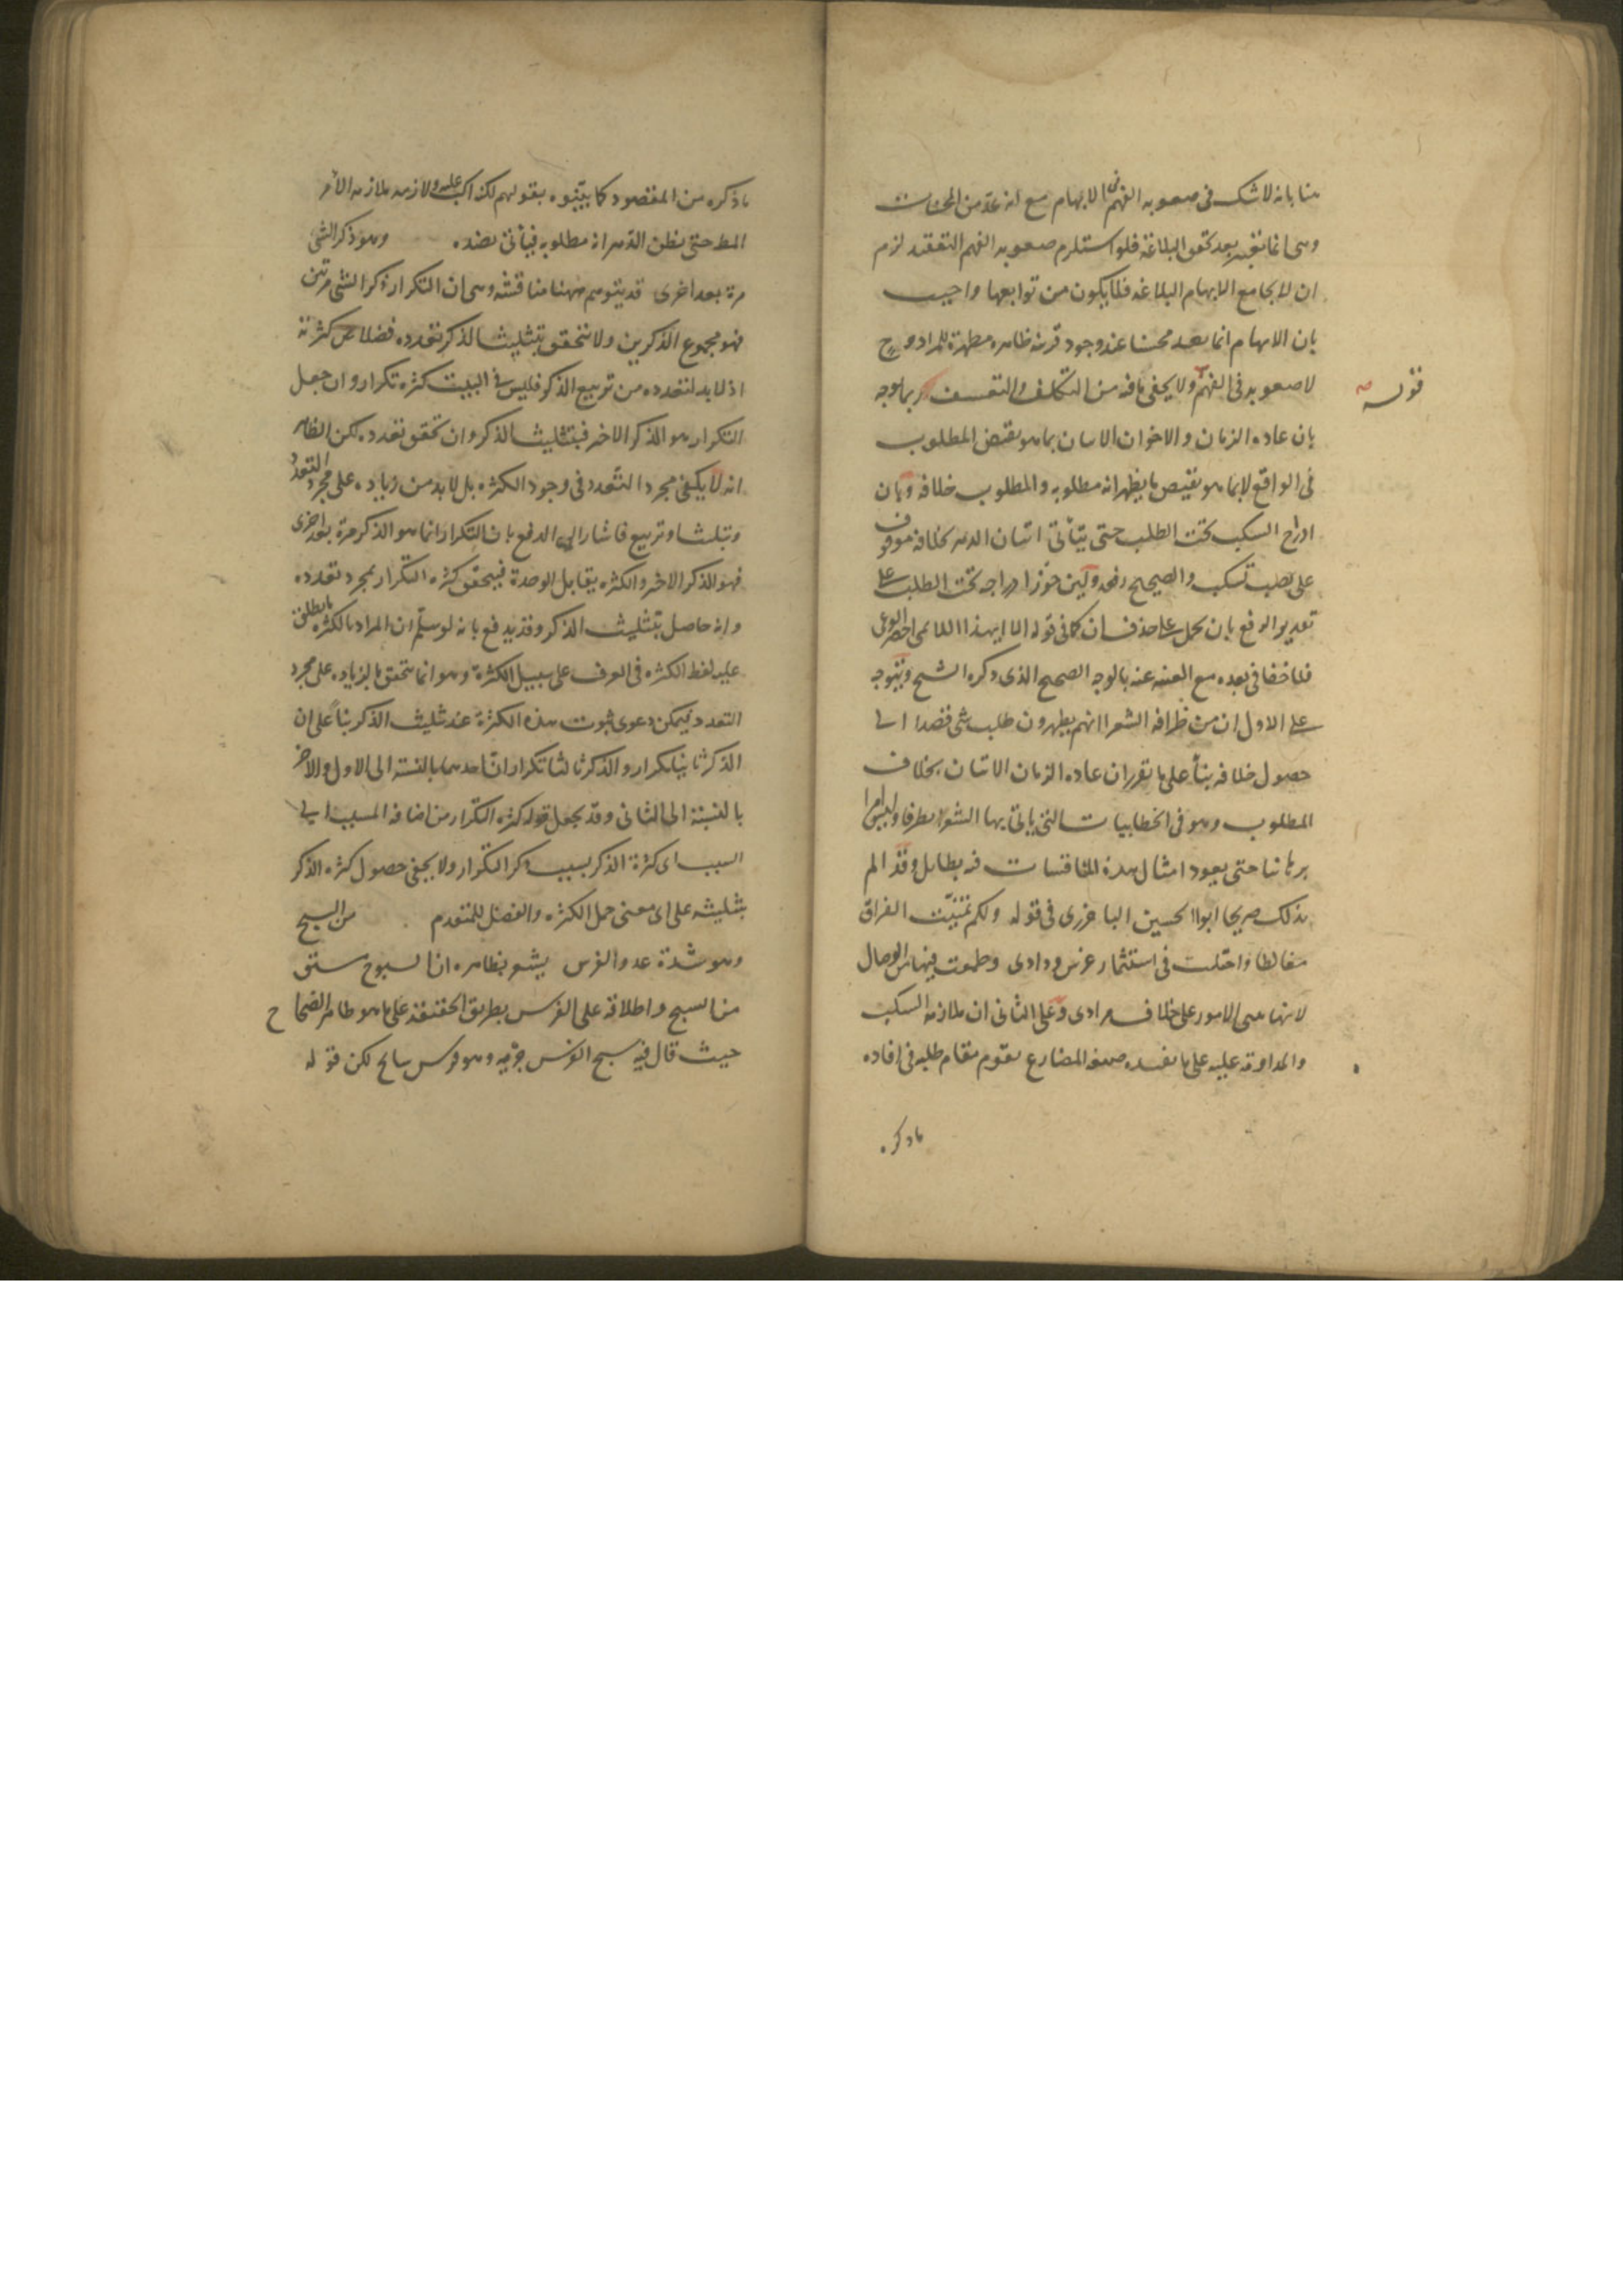 هنا بانه لا شك فى صعوبه الفهم فى الابهام مع انه عد من المحسنات
وهى انما تعتبر بعد تحقق البلاغة فلو استلزم صعوبه الفهم التعقيد لزم
ان لا يجامع الابهام البلاغه فلا يكون من توابعها واجيب
بان الابهام انما يعد محسنا عند وجود قرينه ظاهره مظهرة للمراد وح
لا صعوبه فى الفهم ولا يخفى ما فيه من التكلف والتعسف ربما يوجه
قوله
بان عاده الزمان والاخوان الاتيان بما هو نقيض المطلوب
فى الواقع لا بما هو نقيض ما يظهر انه مطلوبه والمطلوب خلافه وبان
ادراج السكب تحت الطلب حتى يتأتى اتيان الدهر بخلافه موقوف
على نصب تسكب والصحيح رفعه ولين جوز ادراجه تحت الطلب على
تقدير الرفع بان يحمل على حذف ان كما فى قوله الا ايهذا اللائمى احضر الوغى
فلا خفا فى بعده مع الغنيه عنه بالوجه الصحيح الذى ذكره الشيخ ويتوجه
على الاول ان من ظرافه الشعرا انهم يظهرون طلب شى قصدا الى
حصول خلافه بنأ على ما تقرر ان عاده الزمان الاتيان بخلاف
المطلوب وهو فى الخطابيات التى ياتى بها الشعرا تطرفا وليس امرا
برهانيا حتى يعود امثال هذه المناقشات فيه بطايل وقد الم
بذلك صريحا ابوا الحسين الباخرزى فى قوله ولكم تمنيت الفراق
مغالطا واحتلت فى استثمار غرس ودادى وطمعت فيها من الوصال
لانها تبنى الامور على خلاف مرادى وعلى الثانى ان ملازمه السكب
والمداومة عليه على ما تفيده صيغه المضارع تقوم مقام طلبه فى افاده
ما ذكره
ما ذكره من المقصود كما بينوه بقولهم لكنه اكب عليه ولازمه ملازمه الامر
المط حتى يظن الدهر انه مطلوبه فيأتى بضده وهو ذكر الشى
مرة بعد اخرى قد يتوهم ههنا مناقشه وهى ان التكرار ذكر الشى مرتين
فهو مجموع الذكرين ولا يتحقق بتثليث الذكر تعدده فضلا عن كثرته
اذ لا بد لتعدده من تربيع الذكر فليس فى البيت كثره تكرار وان جعل
التكرار هو الذكر الاخر فبتثليث الذكر وان تحقق تعدده لكن الظاهر
انه لا يكفى مجرد التعدد فى وجود الكثره بل لا بد من زياده على مجرد التعدد
وتثليثا وتربيع فاشار الى الدفع بان التكرار انما هو الذكر مرة بعد اخرى
فهو الذكر الاخر والكثره يقابل الوحدة فيتحقق كثره التكرار بمجرد تعدده
وانه حاصل بتثليث الذكر وقد يدفع بانه لو سلم ان المراد بالكثره ما يطلق
عليه لفظ الكثره فى العرف على سبيل الكثرة وهو انما يتحقق بالزياده على مجرد
التعدد فيمكن دعوى ثبوت هذه الكثرة عند تثليث الذكر بنأ على ان
الذكر ثانيا تكرار والذكر ثالثا تكراران احدهما بالنسبه الى الاول والاخر
بالنسبة الى الثانى وقد يجعل قوله كثره التكرار من اضافه المسبب الى
السبب اى كثرة الذكر بسبب ذكر التكرار ولا يخفى حصول كثره الذكر
بتثليثه على اى معنى حمل الكثره والفضل للمتقدم من السبح
وهو شدة عدو الفرس يشعر بظاهره ان السبوح مشتق
من السبح واطلاقه على الفرس بطريق الحقيقة على ما هو ظاهر الصحاح
حيث قال فيه سبح الفرس جريه وهو فرس سابح لكن قوله